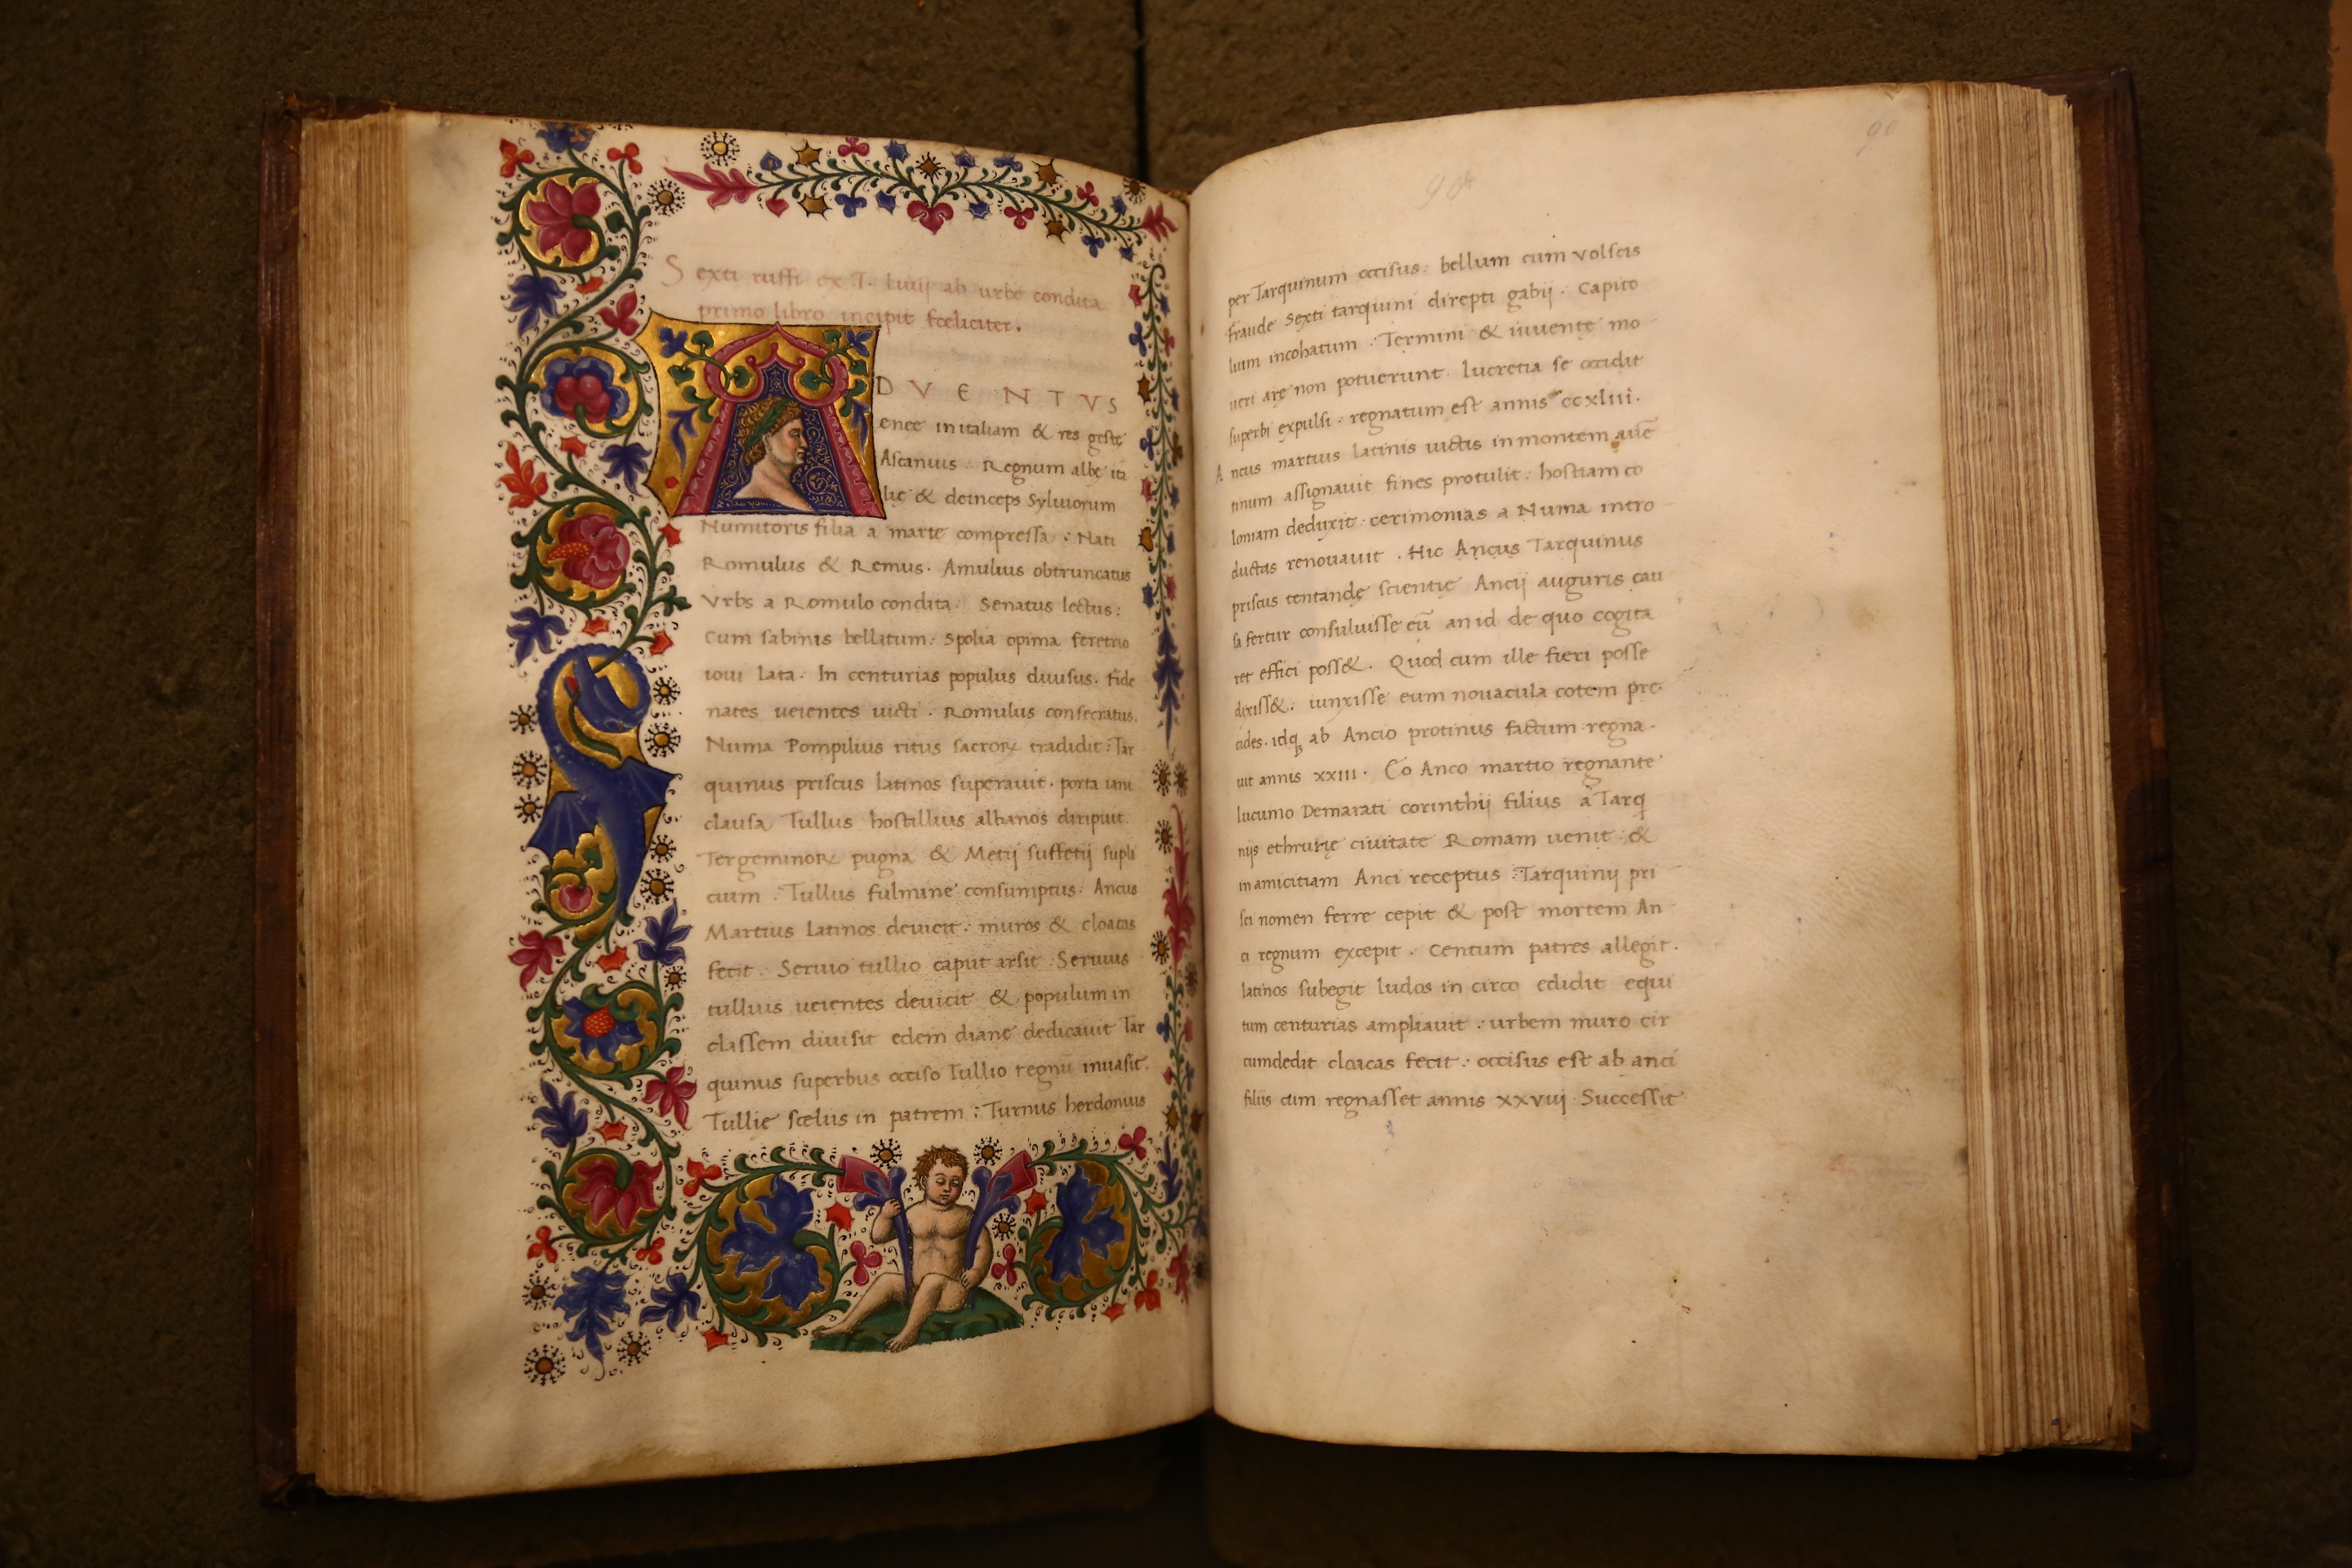 Sexti ruffi ex T. Liuij ab urbe condita
primo libro incipit foeliciter.
ADVENTUS
enee in italiam & res gestę
Ascanius. Regnum albę ita
lię & deinceps Syluiorum
Numitoris filia a marte compressa: Nati
Romulus & Remus. Amulius obtruncatus
Vrbs a Romulo condita. Senatus lectus:
Cum sabinis bellatum: Spolia opima feretrio
ioui Lata. In centurias populus diuisus. fide
nates ueientes uicti. Romulus consecratus.
Numa Pompilius ritus sacroꝝ tradidit: Tar
quinus priscus latinos superauit. porta iani
clausa Tullus hostillius albanos diripuit
Tergeminoꝝ pugna & Metij suffetij supli
cium. Tullus fulmine consumptus: Ancus
Martius Latinos deuicit: muros & cloacas
fecit. Seruio tullio caput arsit Seruius
tullius ueientes deuicit & populum in
classem diuisit edem dianę dedicauit Tar
quinus superbus occiso Tullio regnū inuasit.
Tullię scelus in patrem: Turnus herdonius
90
90
per Tarquinum occisus: bellum cum volscis
fraude Sexti tarquini direpti gabij. Capito
lium incohatum. Termini & iuuentę mo
ueri arę non potuerunt. lucretia se occidit
superbi expulsi: regnatum est annis ccxliii.
Ancus martius Latinis uictis in montem auē
tinum assignauit fines protulit: hostiam co
loniam deduxit. cerimonias a Numa intro
ductas renouauit. Hic Ancus Tarquinus
priscus tentandę scientię Ancij auguris cau
sa fertur consuluisse eū an id de quo cogita
ret effici poss&. Quod cum ille fieri posse
dixiss&: iunxisse eum nouacula cotem prę
cides. idqꝫ ab Ancio protinus factum regna
uit annis xxiii. Eo Anco martio regnante
lucumo Demarati corinthij filius a Tarq
nijs ethrurię ciuitate Romam uenit: &
in amicitiam Anci receptus: Tarquinij pri
sci nomen ferre cepit & post mortem An
ci regnum excepit. Centum patres allegit.
latinos subegit ludos in circo edidit equi
tum centurias ampliauit: urbem muro cir
cumdedit cloacas fecit: occisus est ab anci
filiis cum regnasset annis xxviij Successit